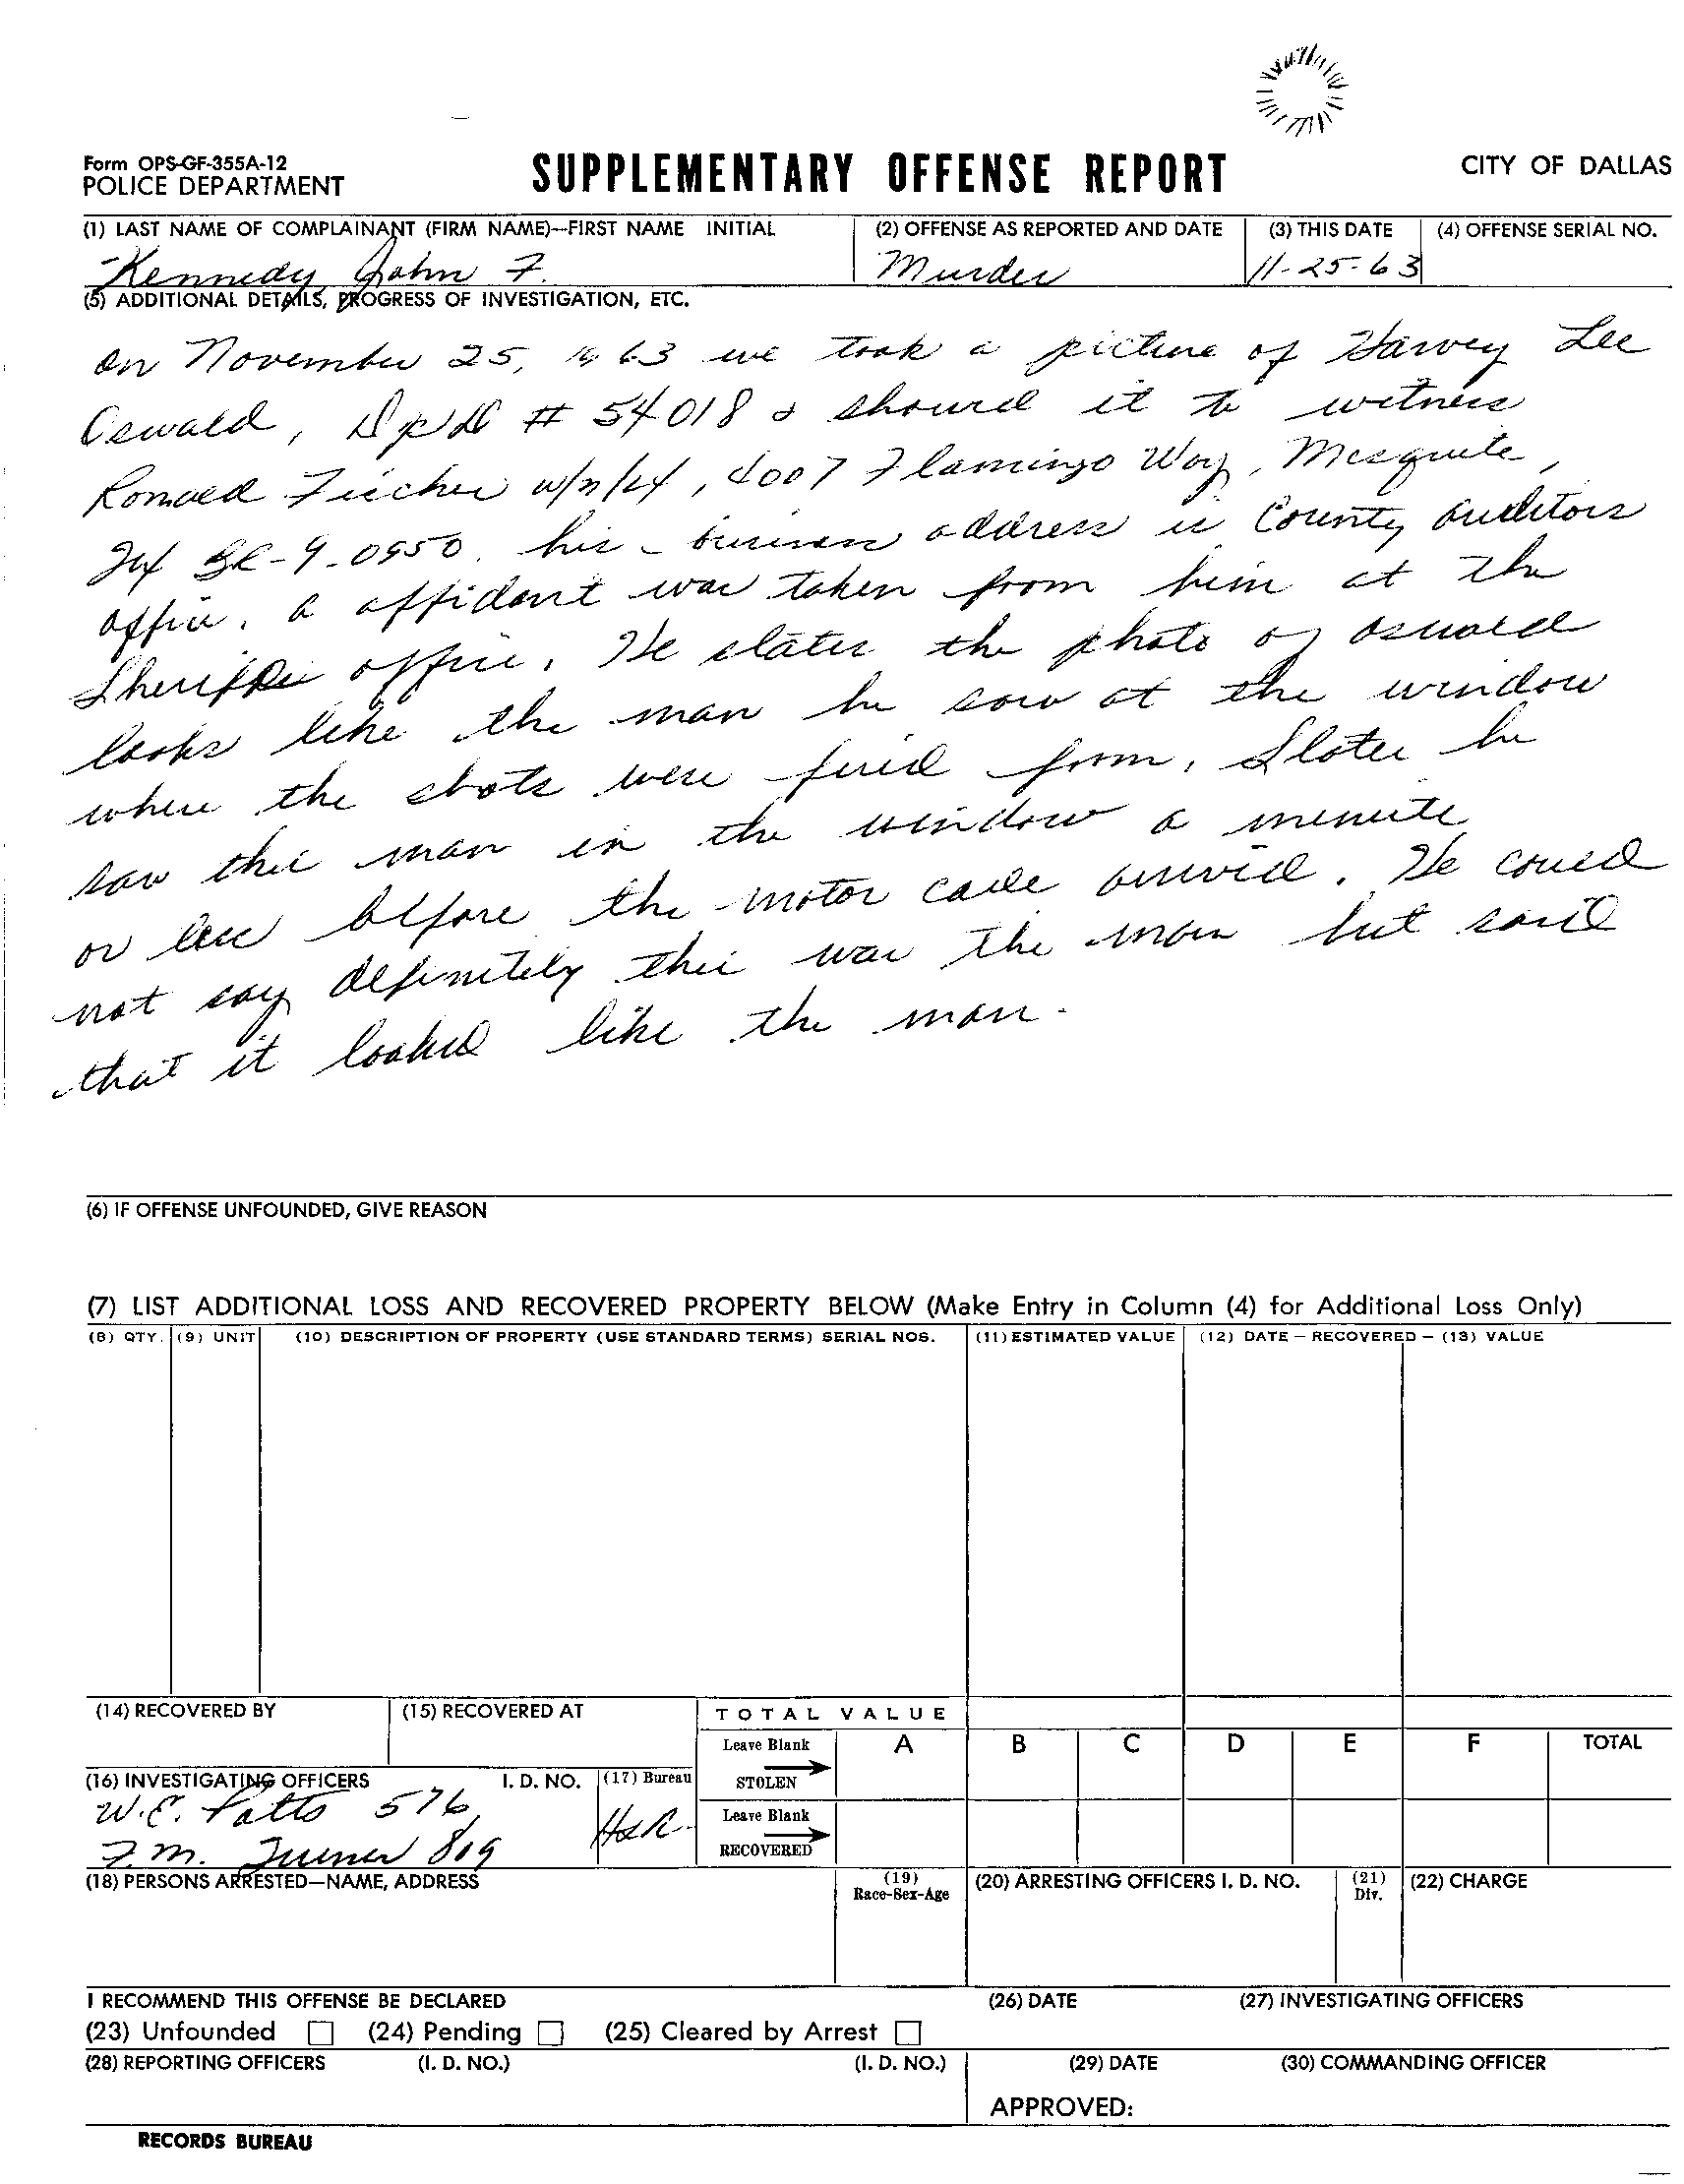 Form OPS-GF-355A-12
POLICE DEPARTMENT
SUPPLEMENTARY OFFENSE REPORT
CITY OF DALLAS
(1) LAST NAME OF COMPLAINANT (FIRM NAME)—FIRST NAME INITIAL
(2) OFFENSE AS REPORTED AND DATE
(3) THIS DATE
(4) OFFENSE SERIAL NO.
Kennedy John F.
Murder
11-25-63
(5) ADDITIONAL DETAILS, PROGRESS OF INVESTIGATION, ETC.
on November 25, 1963 we took a picture of Harvey Lee
Oswald, DPD # 54018 & showed it to witness
Ronald Fischer w/m/24, 4007 Flamingo Way, Mesquite,
Tex BR-9-0950. his business address is County Auditors
office. a affidavit was taken from him at the
Sheriffs office. He states the photo of Oswald
looks like the man he saw at the window
where the shots were fired from. States he
saw this man in the window a minute
or less before the motor cade arrived. He could
not say definitely this was the man but said
that it looked like the man.
(6) IF OFFENSE UNFOUNDED, GIVE REASON
(7) LIST ADDITIONAL LOSS AND RECOVERED PROPERTY BELOW (Make Entry in Column (4) for Additional Loss Only)
(8) QTY. (9) UNIT (10) DESCRIPTION OF PROPERTY (USE STANDARD TERMS) SERIAL NOS. (11) ESTIMATED VALUE (12) DATE – RECOVERED – (13) VALUE
(14) RECOVERED BY
(15) RECOVERED AT
TOTAL VALUE
Leave Blank
STOLEN
A B C D E F TOTAL
(16) INVESTIGATING OFFICERS I. D. NO. (17) Bureau
W.E. Potts 576
F.M. Turner 819
H&R
Leave Blank
RECOVERED
(18) PERSONS ARRESTED—NAME, ADDRESS
(19)
Race-Sex-Age
(20) ARRESTING OFFICERS I. D. NO.
(21)
Div.
(22) CHARGE
I RECOMMEND THIS OFFENSE BE DECLARED
(26) DATE
(27) INVESTIGATING OFFICERS
(23) Unfounded (24) Pending (25) Cleared by Arrest
(28) REPORTING OFFICERS (I. D. NO.) (I. D. NO.)
(29) DATE
(30) COMMANDING OFFICER
APPROVED:
RECORDS BUREAU